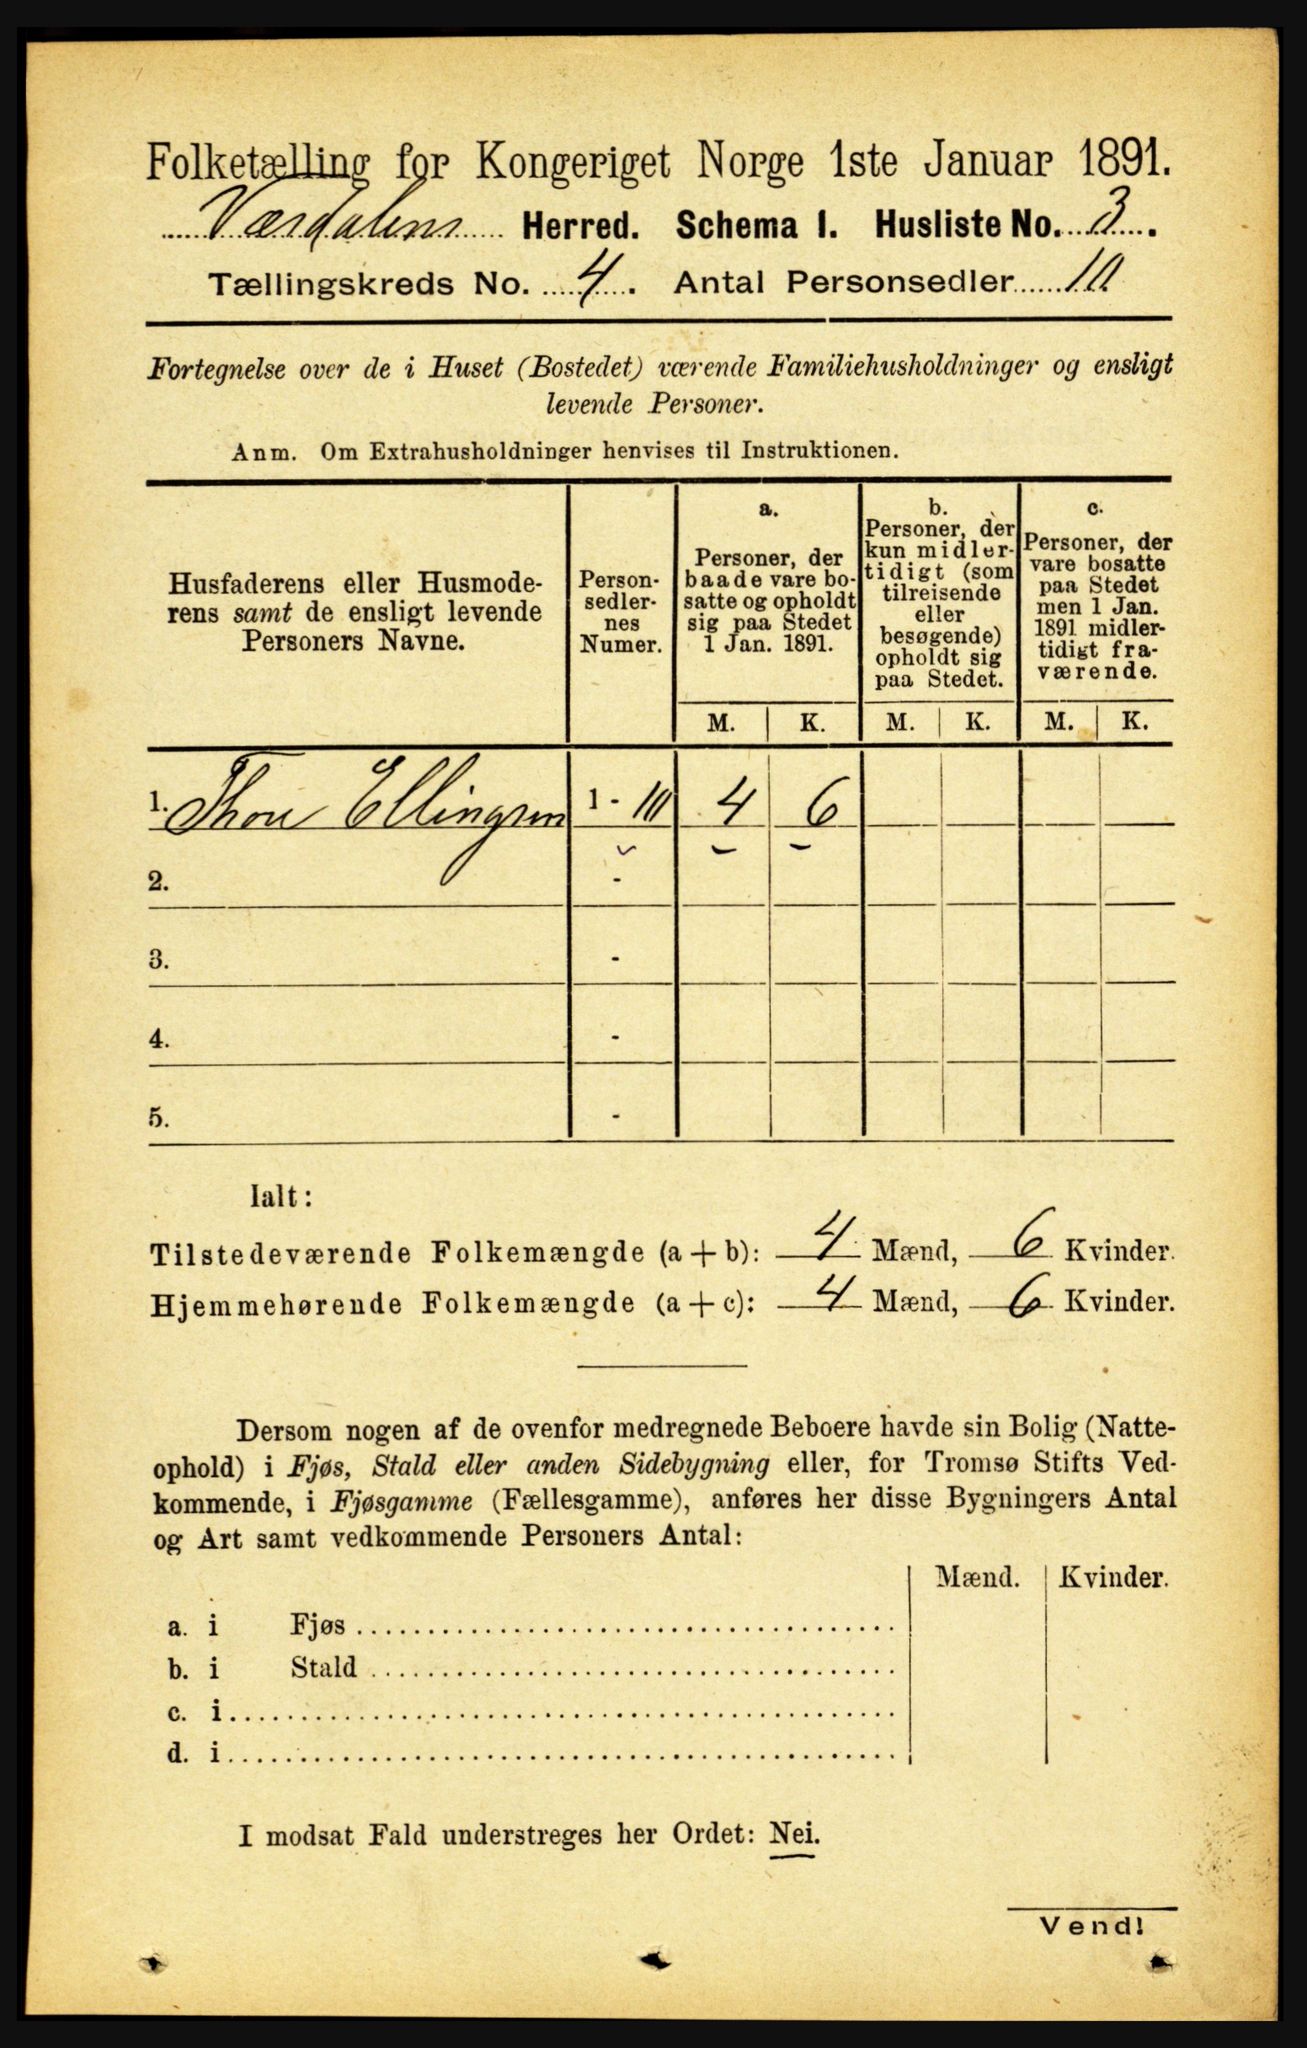 Folketælling for Kongeriget Norge 1ste Januar 1891.
Værdalens Herred. Schema I. Husliste No. 3.
Tællingskreds No. 4. Antal Personsedler 10
Fortegnelse over de i Huset (Bostedet) værende Familiehusholdninger og ensligt
levende Personer.
Anm. Om Extrahusholdninger henvises til Instruktionen.
Husfaderens eller Husmode-
rens samt de ensligt levende
Personers Navne.
Person-
sedler-
nes
Numer.
a.
Personer, der
baade vare bo-
satte og opholdt
sig paa Stedet
1 Jan. 1891.
b.
Personer, der
kun midler-
tidigt (som
tilreisende
eller
besøgende)
opholdt sig
paa Stedet.
c.
Personer, der
vare bosatte
paa Stedet
men 1 Jan.
1891 midler-
tidigt fra-
værende.
M. K. M. K. M. K.
1. Thore Ellingsen 1 - 10 4 6
2. -
3. -
4. -
5. -
Ialt:
Tilstedeværende Folkemængde (a + b): 4 Mænd, 6 Kvinder.
Hjemmehørende Folkemængde (a + c): 4 Mænd, 6 Kvinder.
Dersom nogen af de ovenfor medregnede Beboere havde sin Bolig (Natte-
ophold) i Fjøs, Stald eller anden Sidebygning eller, for Tromsø Stifts Ved-
kommende, i Fjøsgamme (Fællesgamme), anføres her disse Bygningers Antal
og Art samt vedkommende Personers Antal:
Mænd. Kvinder.
a. i Fjøs
b. i Stald
c. i
d. i
I modsat Fald understreges her Ordet: Nei.
Vend!